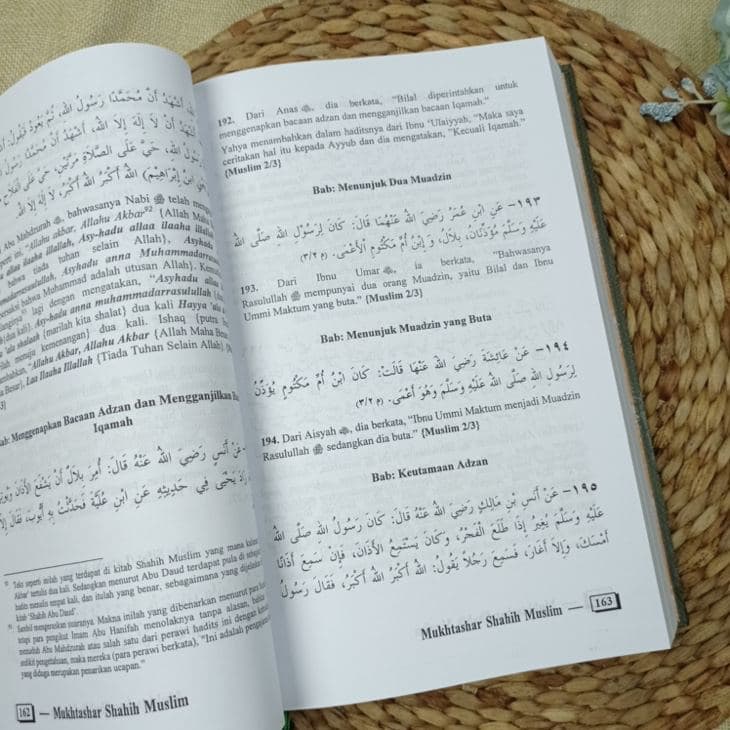 أَشْهَدُ أَنَّ مُحَمَّدًا رَسُولُ اللهِ، ثُمَّ يَعُودُ فَيَقُولُ:
أَشْهَدُ أَنْ لَا إِلَهَ إِلَّا اللهُ، أَشْهَدُ أَنَّ مُحَمَّدًا رَسُولُ
حَيَّ عَلَى الصَّلَاةِ مَرَّتَيْنِ، حَيَّ عَلَى الْفَلَاحِ
اللهُ أَكْبَرُ اللهُ أَكْبَرُ، لَا إِلَهَ إِلَّا اللهُ
Abu Mahdzurah, bahwasanya Nabi telah
seperti ini, "Allahu akbar, Allahu Akbar⁹² {Allah Maha
allaa ilaaha illallah, Asy-hadu allaa ilaaha illallah
bahwa tiada tuhan selain Allah}, Asyhadu
Asyhadu anna Muhammadarrasulullah
bersaksi bahwa Muhammad adalah utusan Allah}.
lagi dengan mengatakan, "Asyhadu allaa
dua kali}. Asyhadu anna muhammadarrasulullah
{marilah kita shalat} dua kali Hayya 'alal
menuju kemenangan} dua kali. Ishaq {putra
"Allahu Akbar, Allahu Akbar {Allah Maha Besar
Laa Ilaaha Illallah {Tiada Tuhan Selain Allah}
Bab: Menggenapkan Bacaan Adzan dan Mengganjilkan
Iqamah
عَنْ أَنَسٍ رَضِيَ اللهُ عَنْهُ قَالَ: أُمِرَ بِلَالٌ أَنْ يَشْفَعَ الْأَذَانَ
زَادَ يَحْيَى فِي حَدِيثِهِ عَنِ ابْنِ عُلَيَّةَ فَحَدَّثْتُ بِهِ أَيُّوبَ، فَقَالَ
Teks seperti inilah yang terdapat di kitab Shahih Muslim yang mana
Akbar' tertulis dua kali. Sedangkan menurut Abu Daud terdapat pula di
hadits menulis empat kali, dan itulah yang benar, sebagaimana yang
kitab 'Shahih Abu Daud'.
Sambil mengeraskan suaranya. Makna inilah yang dibenarkan menurut para
tetapi para pengikut Imam Abu Hanifah menolaknya tanpa alasan,
menuduh Abu Mahdzurah atau salah satu dari perawi hadits ini dengan
sedikit pengetahuan, maka mereka (para perawi berkata), "Ini adalah
yang diduga merupakan penarikan ucapan."
162 — Mukhtashar Shahih Muslim
192. Dari Anas ﷺ, dia berkata, "Bilal diperintahkan untuk
menggenapkan bacaan adzan dan mengganjilkan bacaan Iqamah."
Yahya menambahkan dalam haditsnya dari Ibnu 'Ulaiyyah, "Maka saya
ceritakan hal itu kepada Ayyub dan dia mengatakan, "Kecuali Iqamah."
{Muslim 2/3}
Bab: Menunjuk Dua Muadzin
١٩٣- عَنِ ابْنِ عُمَرَ رَضِيَ اللهُ عَنْهُمَا قَالَ: كَانَ لِرَسُوْلِ اللهِ صَلَّى اللهُ
عَلَيْهِ وَسَلَّمَ مُؤَذِّنَانِ، بِلَالٌ، وَ إِبْنُ أُمِّ مَكْتُوْمٍ الْأَعْمَى. (م ٣/٢)
193. Dari Ibnu Umar, ia berkata, "Bahwasanya
Rasulullah ﷺ mempunyai dua orang Muadzin, yaitu Bilal dan Ibnu
Ummi Maktum yang buta." {Muslim 2/3}
Bab: Menunjuk Muadzin yang Buta
١٩٤- عَنْ عَائِشَةَ رَضِيَ اللهُ عَنْهَا قَالَتْ: كَانَ ابْنُ أُمِّ مَكْتُوْمٍ يُؤَذِّنُ
لِرَسُوْلِ اللهِ صَلَّى اللهُ عَلَيْهِ وَسَلَّمَ وَهُوَ أَعْمَى. (م ٣/٢)
194. Dari Aisyah, dia berkata, "Ibnu Ummi Maktum menjadi Muadzin
Rasulullah ﷺ sedangkan dia buta." {Muslim 2/3}
Bab: Keutamaan Adzan
١٩٥- عَنْ أَنَسِ بْنِ مَالِكٍ رَضِيَ اللهُ عَنْهُ قَالَ: كَانَ رَسُوْلُ اللهِ صَلَّى اللهُ
عَلَيْهِ وَسَلَّمَ يُغِيْرُ إِذَا طَلَعَ الْفَجْرُ، وَكَانَ يَسْتَمِعُ الْأَذَانَ، فَإِنْ سَمِعَ أَذَانًا
أَمْسَكَ، وَإِلَّا أَغَارَ، فَسَمِعَ رَجُلًا يَقُوْلُ: اللهُ أَكْبَرُ اللهُ أَكْبَرُ، فَقَالَ رَسُوْلُ
Mukhtashar Shahih Muslim — 163